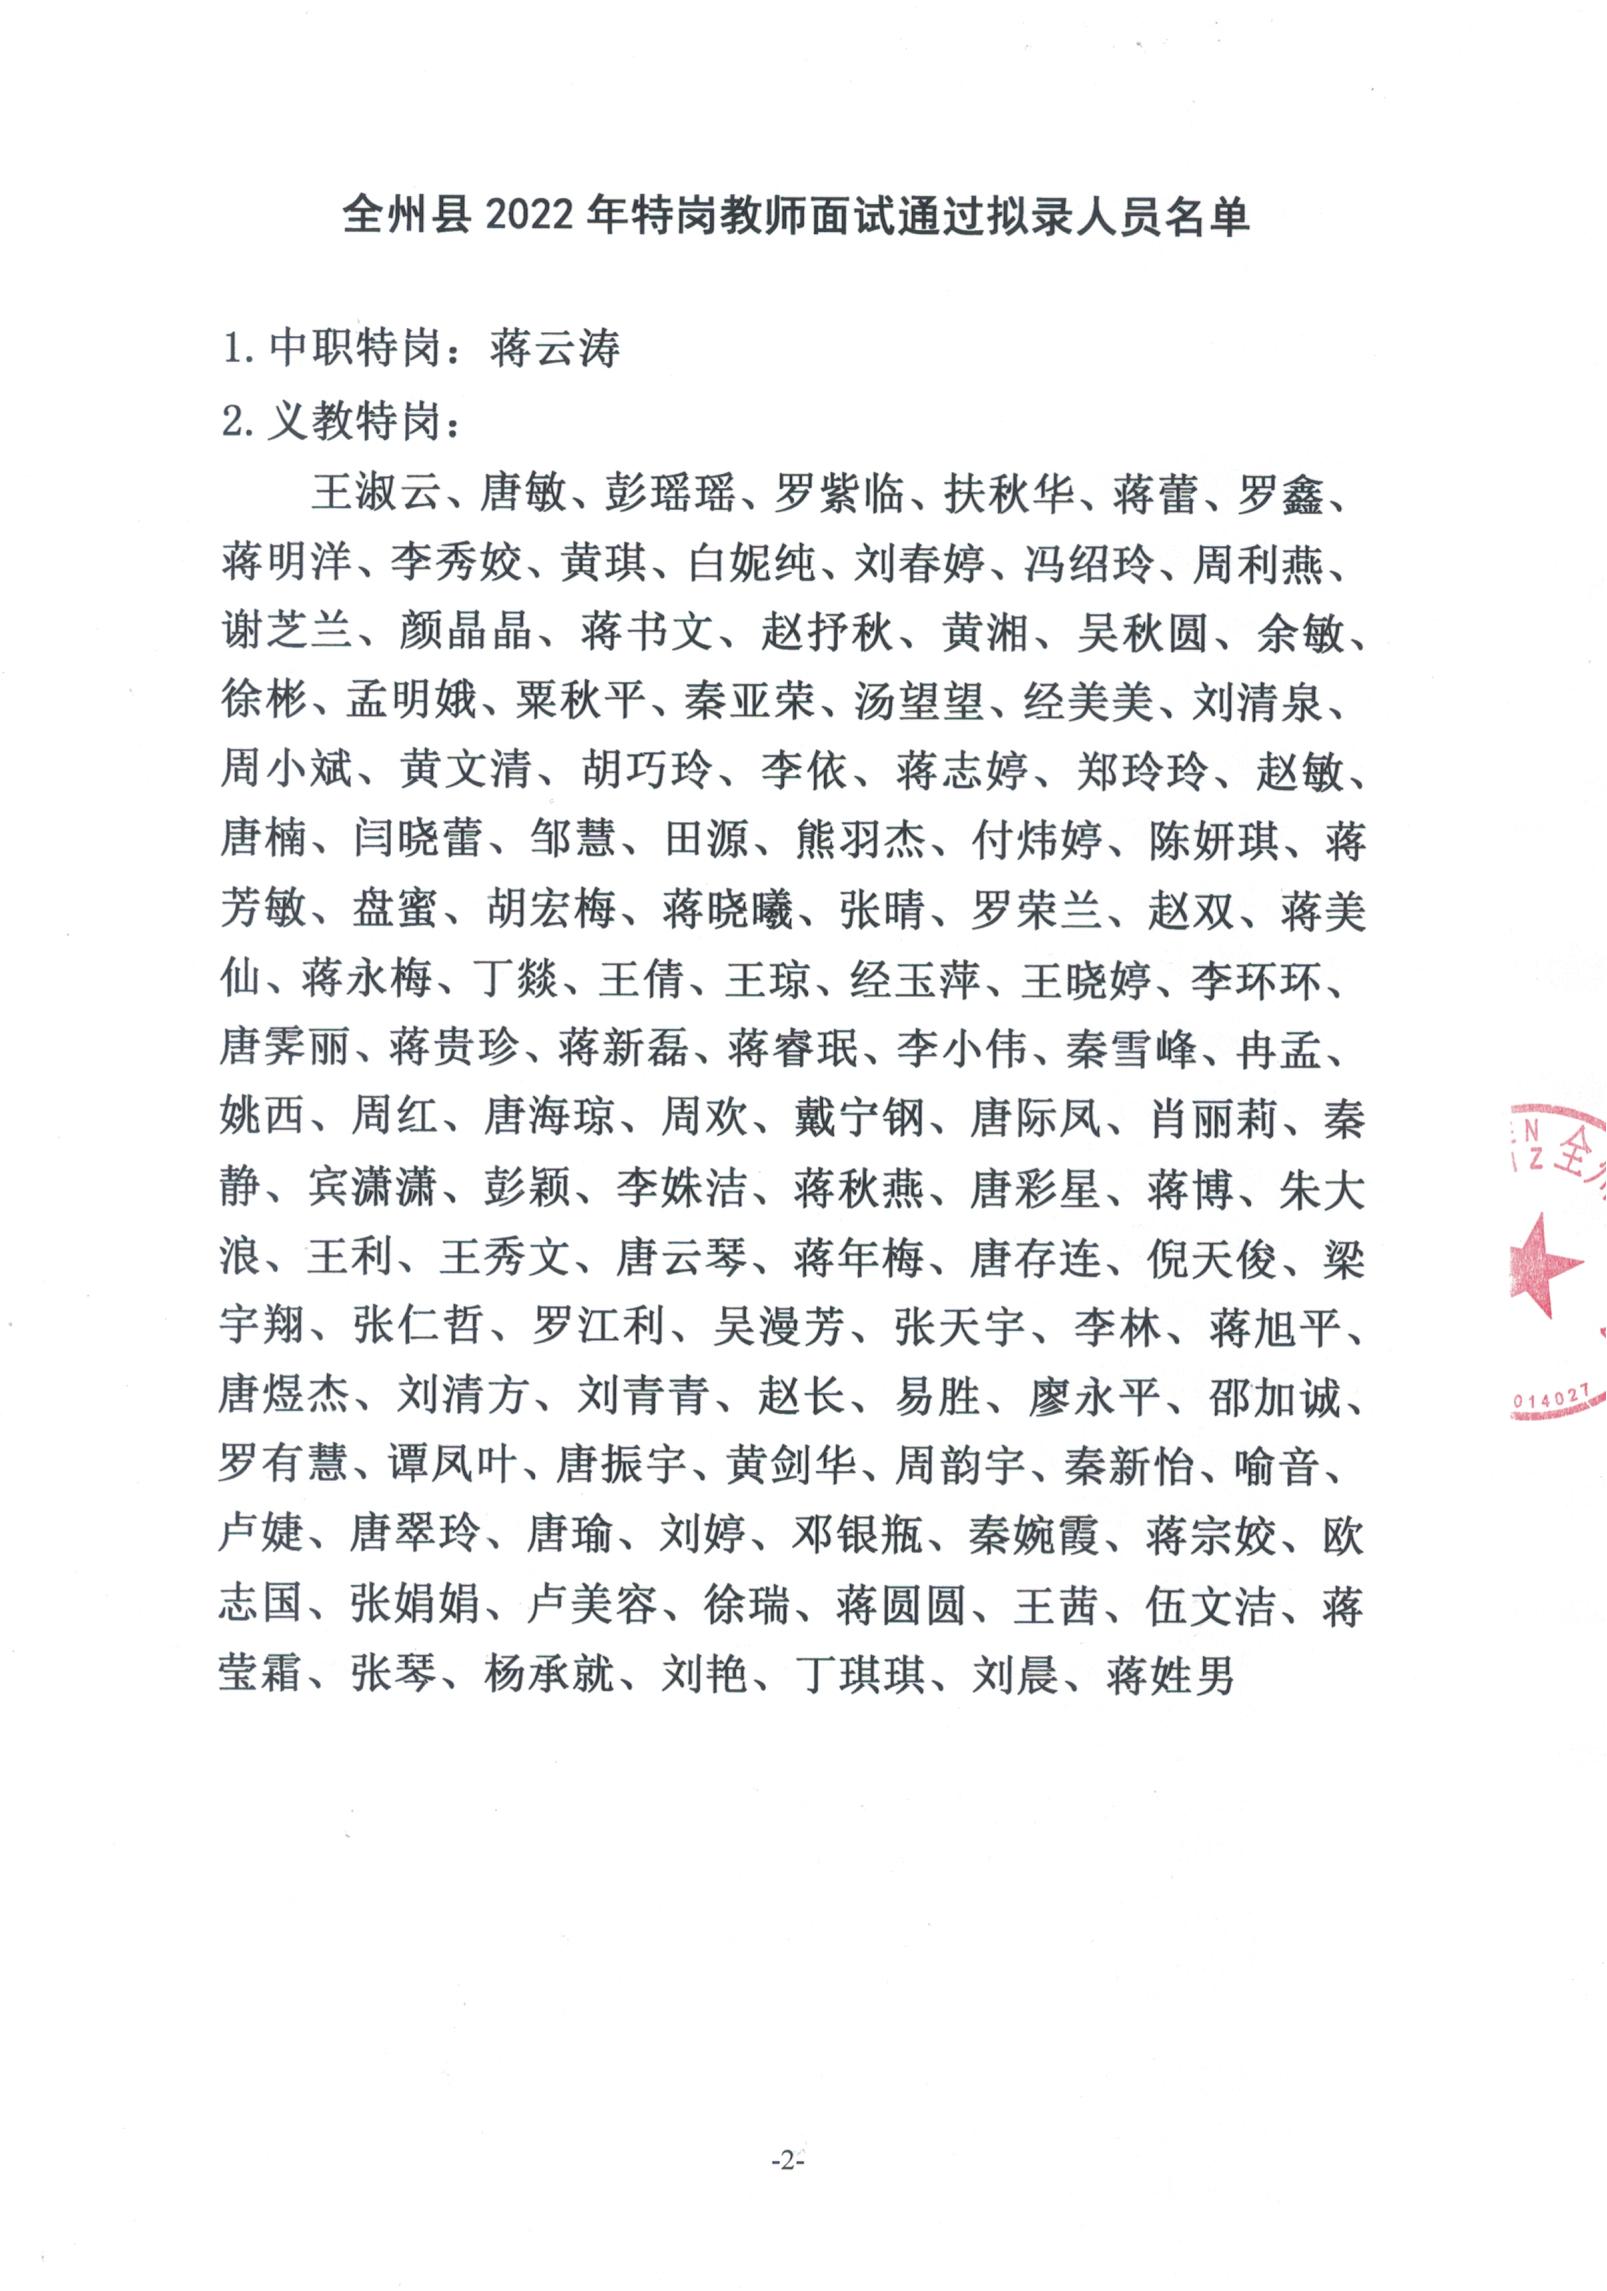 全州县 2022 年特岗教师面试通过拟录人员名单
1. 中职特岗：蒋云涛
2. 义教特岗：
王淑云、唐敏、彭瑶瑶、罗紫临、扶秋华、蒋蕾、罗鑫、
蒋明洋、李秀姣、黄琪、白妮纯、刘春婷、冯绍玲、周利燕、
谢芝兰、颜晶晶、蒋书文、赵抒秋、黄湘、吴秋圆、余敏、
徐彬、孟明娥、粟秋平、秦亚荣、汤望望、经美美、刘清泉、
周小斌、黄文清、胡巧玲、李依、蒋志婷、郑玲玲、赵敏、
唐楠、闫晓蕾、邹慧、田源、熊羽杰、付炜婷、陈妍琪、蒋
芳敏、盘蜜、胡宏梅、蒋晓曦、张晴、罗荣兰、赵双、蒋美
仙、蒋永梅、丁燚、王倩、王琼、经玉萍、王晓婷、李环环、
唐霁丽、蒋贵珍、蒋新磊、蒋睿珉、李小伟、秦雪峰、冉孟、
姚西、周红、唐海琼、周欢、戴宁钢、唐际凤、肖丽莉、秦
静、宾潇潇、彭颖、李姝洁、蒋秋燕、唐彩星、蒋博、朱大
浪、王利、王秀文、唐云琴、蒋年梅、唐存连、倪天俊、梁
宇翔、张仁哲、罗江利、吴漫芳、张天宇、李林、蒋旭平、
唐煜杰、刘清方、刘青青、赵长、易胜、廖永平、邵加诚、
罗有慧、谭凤叶、唐振宇、黄剑华、周韵宇、秦新怡、喻音、
卢婕、唐翠玲、唐瑜、刘婷、邓银瓶、秦婉霞、蒋宗姣、欧
志国、张娟娟、卢美容、徐瑞、蒋圆圆、王茜、伍文洁、蒋
莹霜、张琴、杨承就、刘艳、丁琪琪、刘晨、蒋姓男
EN 全州
Z
014027
-2-